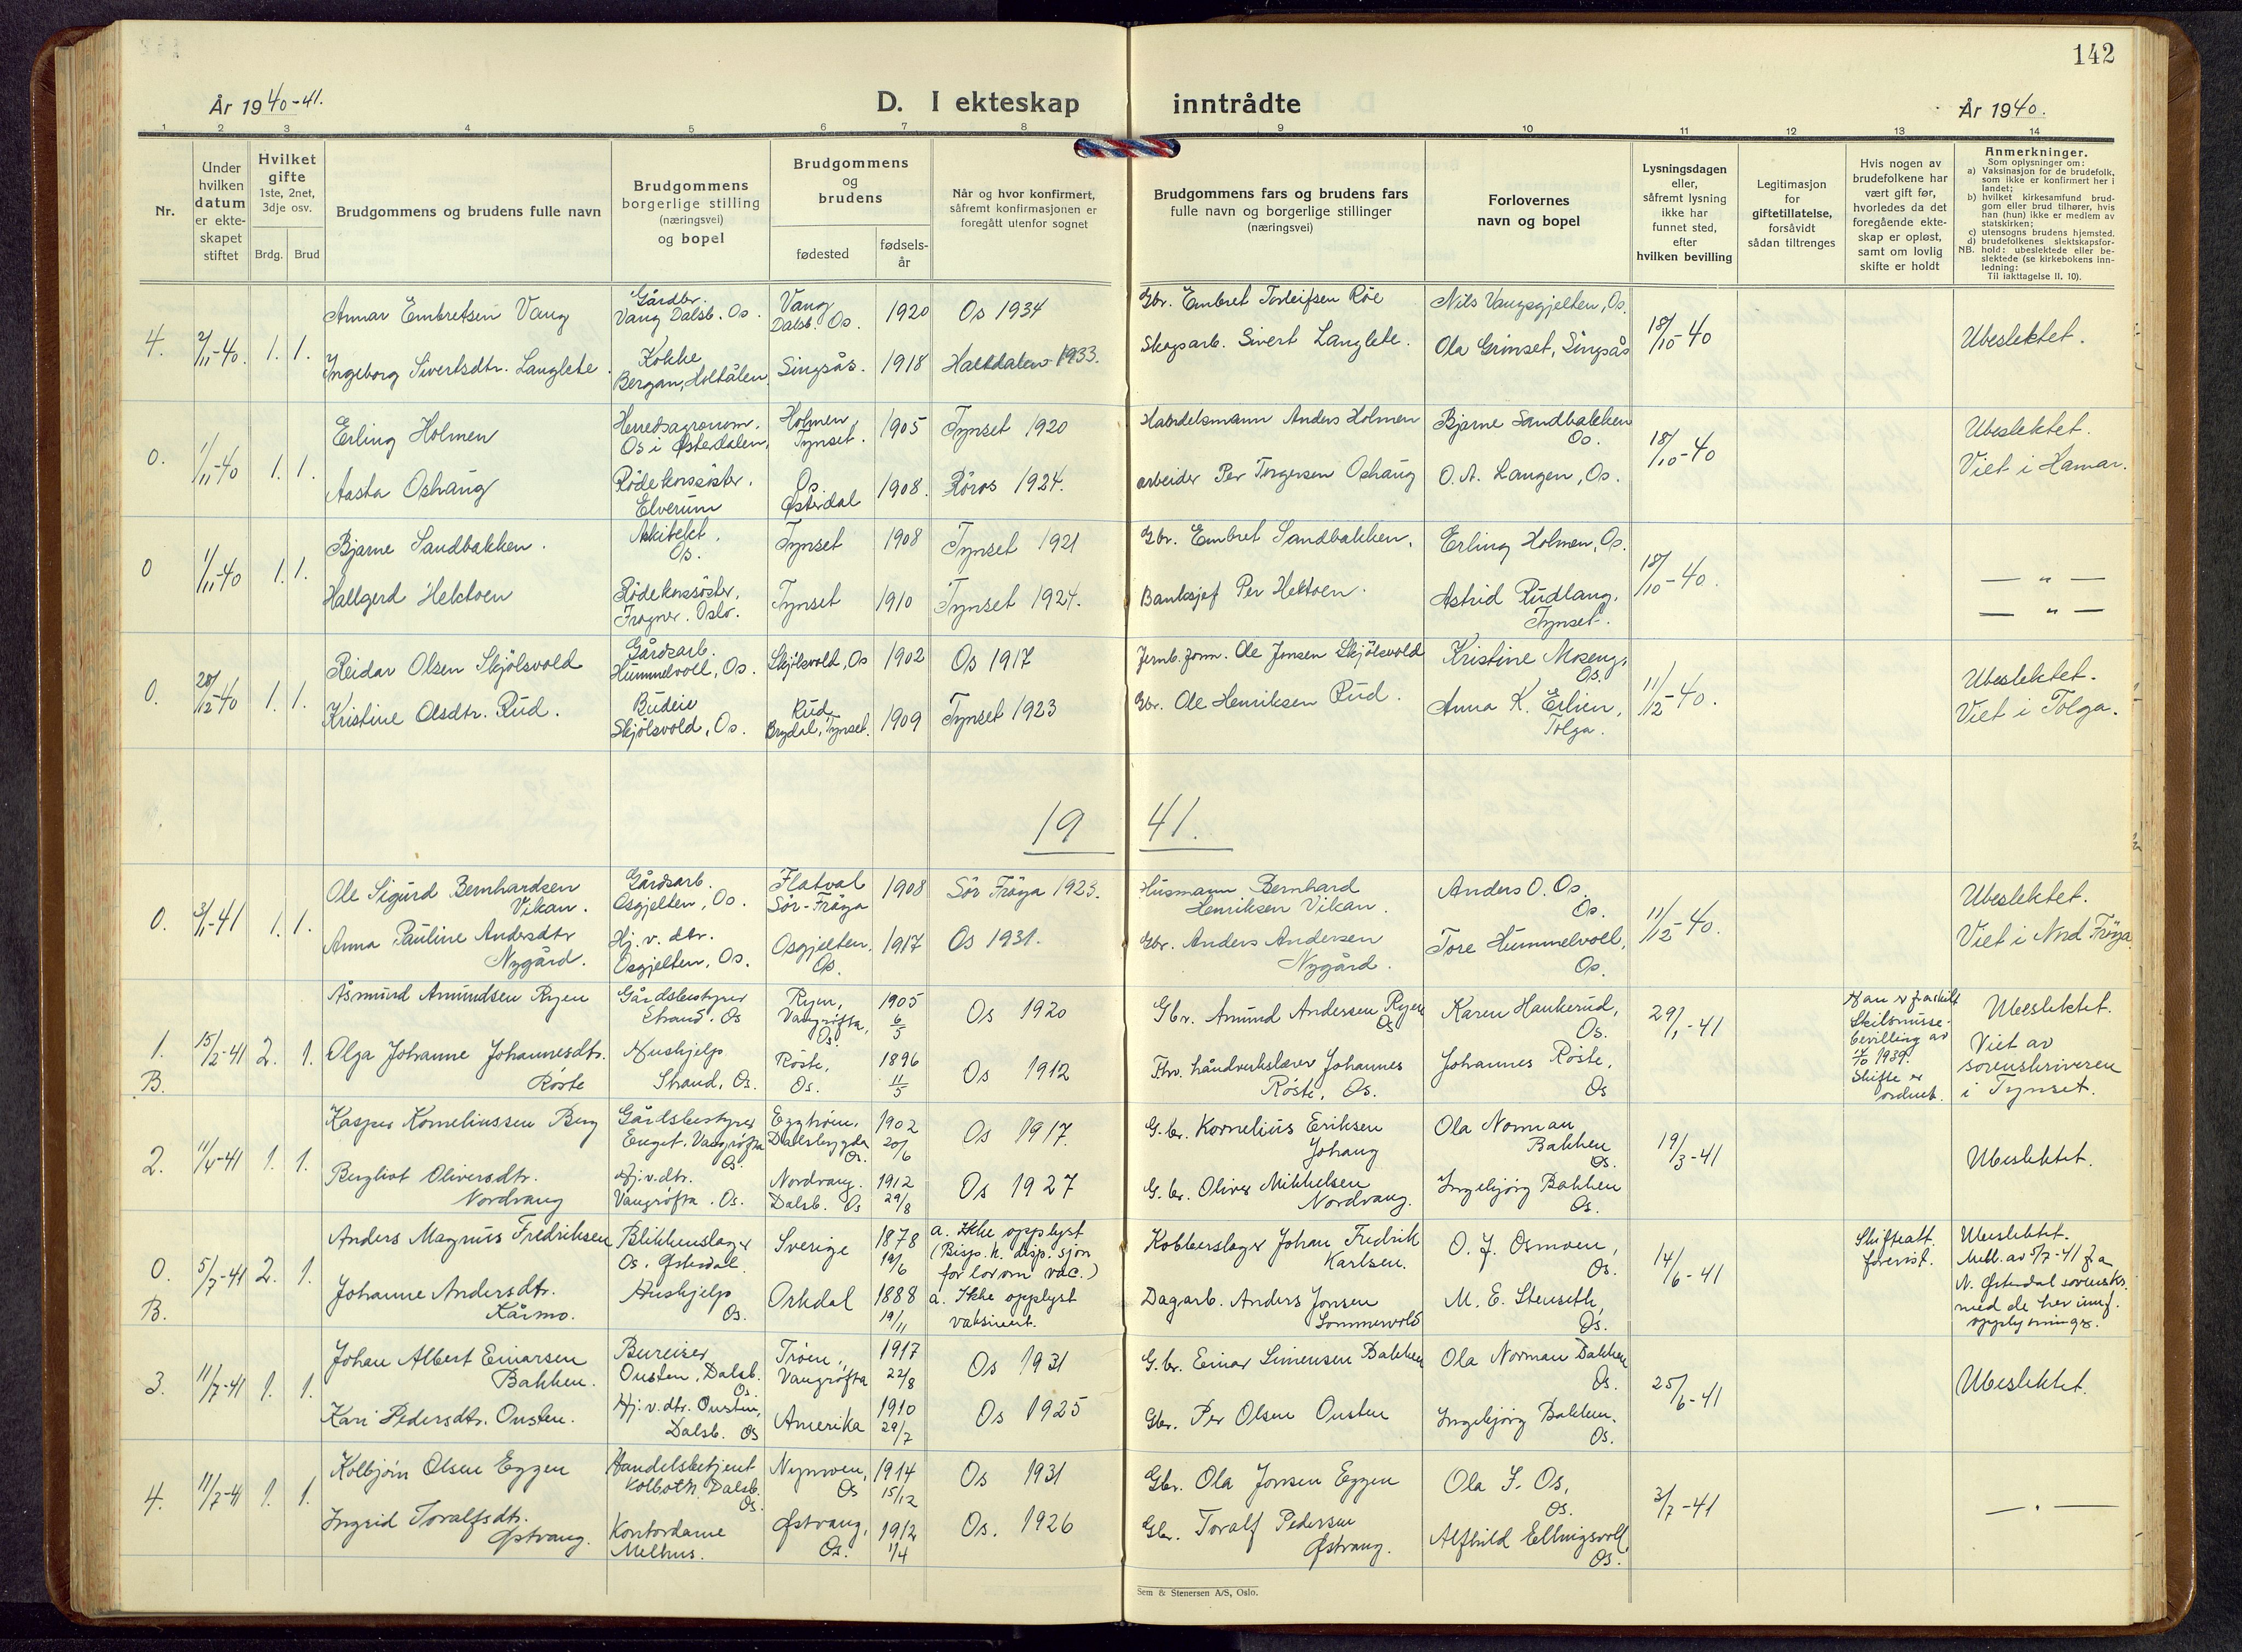 142
År 1940-41.
D. I ekteskap inntrådte
År 1940.
1 2 3 4 5 6 7 8 9 10 11 12 13 14
Nr.
Under
hvilken
datum
er ekte-
skapet
stiftet
Hvilket
gifte
1ste, 2net,
3dje osv.
Brdg. Brud
Brudgommens og brudens fulle navn
Brudgommens
borgerlige stilling
(næringsvei)
og bopel
Brudgommens
og
brudens
fødested
fødsels-
år
Når og hvor konfirmert,
såfremt konfirmasjonen er
foregått utenfor sognet
Brudgommens fars og brudens fars
fulle navn og borgerlige stillinger
(næringsvei)
Forlovernes
navn og bopel
Lysningsdagen
eller,
såfremt lysning
ikke har
funnet sted,
efter
hvilken bevilling
Legitimasjon
for
giftetillatelse,
forsåvidt
sådan tiltrenges
Hvis nogen av
brudefolkene har
vært gift før,
hvorledes da det
foregående ekte-
skap er opløst,
samt om lovlig
skifte er holdt
Anmerkninger.
Som oplysninger om:
a) Vaksinasjon for de brudefolk,
som ikke er konfirmert her i
landet;
b) hvilket kirkesamfund brud-
gom eller brud tilhører, hvis
han (hun) ikke er medlem av
statskirken;
c) utensogns brudens hjemsted.
d) brudefolkenes slektskapsfor-
NB. hold: ubeslektede eller be-
slektede (se kirkebokens inn-
ledning:
Til iakttagelse II, 10).
4. 2/11-40. 1. 1.
Annar Embretsen Vang
Gårdbr.
Vang Dalsb. Os.
Vang
Dalsb. Os.
1920 Os 1934
Gbr. Embret Torleifsen Röe
Nils Vangsgjelten, Os.
18/10-40
Ubeslektet.
Ingeborg Sivertsdtr. Langlete.
Kokke
Bergan, Holtålen
Singsås. 1918 Haltdalen 1933.
Skogsarb. Sivert Langlete.
Ola Grinset, Singsås
0. 1/11-40 1. 1.
Erling Holmen
Herredsagronom.
Os i Østerdalen.
Holmen,
Tynset.
1905 Tynset 1920
Handelsmann Anders Holmen
Bjarne Sandbakken
Os.
18/10-40
Ubeslektet.
Viet i Hamar.
Aasta Oshaug
Rödekorssöster.
Elverum
Os
Østerdal
1908. Röros 1924.
arbeider Per Torgersen Oshaug
O. A. Langen, Os.
0 1/11-40 1. 1.
Bjarne Sandbakken.
Arkitekt.
Os.
Tynset 1908 Tynset 1921
Gbr. Embret Sandbakken.
Erling Holmen, Os.
18/10-40.
— " —
— " —
Hallgerd Hektoen
Rödekorssöster,
Frogner. Oslo.
Tynset 1910 Tynset 1924.
Banksjef Per Hektoen.
Astrid Rudlang,
Tynset.
0. 28/12-40 1. 1.
Reidar Olsen Skjölsvold
Gårdsarb.
Hummelvoll, Os.
Skjölsvold, Os 1902 Os 1917
Jernb.form. Ole Jonsen Skjölsvold
Kristine Moseng,
Os.
11/12-40.
Ubeslektet.
Viet i Tolga.
Kristine Olsdtr. Rud.
Budeie
Skjölsvold, Os.
Rud
Brydal, Tynset.
1909 Tynset 1923
Gbr. Ole Henriksen Rud.
Anna K. Erlien,
Tolga.
19 41.
0. 3/1-41 1. 1.
Ole Sigurd Bernhardsen
Vikan.
Gårdsarb.
Osgjelten, Os.
Flatval
Sör-Fröya
1908 Sör Fröya 1923.
Husmann Bernhard
Henriksen Vikan.
Anders O. Os.
Os.
11/12-40.
Ubeslektet.
Viet i Nord Fröya
Anna Pauline Andersdtr
Nygård.
Hj. v. dtr.
Osgjelten, Os.
Osgjelten,
Os.
1917 Os 1931.
Gbr. Anders Andersen
Nygård.
Tore Hummelvoll,
Os.
1.
B.
15/2-41 2. 1.
Åsmund Amundsen Ryen
Gårdsbestyrer
Strand. Os
Ryen,
Vangrøfta,
Os.
1905
6/5
Os 1920
Gbr. Amund Andersen Ryen
Os
Karen Haukerud,
Os.
29/1-41
Han er fraskilt
Skilsmisse-
bevilling av
1939.
Skifte er
ordnet.
Ubeslektet.
Viet av
sorenskriveren
i Tynset.
Olga Johanne Johannesdtr.
Røste
Hushjelp
Strand, Os.
Røste,
Os.
1896
11/5
Os 1912
Fhv. håndverkslærer Johannes
Røste, Os.
Johannes Røste,
Os
2. 11/4-41 1. 1.
Kasper Korneliussen Berg
Gårdsbestyrer
Enget, Vangrøfta
Os.
Eggtrøen,
Dalsbygda
Os.
1902
20/6
Os 1917.
G.br. Kornelius Eriksen
Johaug
Ola Norman
Bakken
Os.
19/3-41
Ubeslektet.
Bergliot Oliversdtr.
Nordvang
Hj.v.dtr.
Vangrøfta. Os.
Nordvang.
Dalsb. Os
1912
29/8
Os 1927
G.br. Oliver Mikkelsen
Nordvang.
Ingebjørg Bakken
Os.
0.
B.
5/7-41 2. 1.
Anders Magnus Fredriksen
Blikkenslager
Os. Østerdal.
Sverige
1878
19/6
a. Ikke opplyst
(Bisp. h. disp. sjon
for lov om vac.)
Kobberslager Johan Fredrik
Karlsen.
O. J. Osmoen,
Os.
14/6-41
Skifteatt.
forevist.
Ubeslektet.
Meld. av 5/7-41 fra
N. Østerdal sorenskr.
med de her innf.
opplysninger.
Johanne Andersdtr.
Kårmo.
Hushjelp
Os.
Orkdal
1888
19/11
a. Ikke opplyst
vaksinert.
Dagarb. Anders Jonsen
Sommervold
M. E. Stenseth,
Os.
3. 11/7-41 1. 1.
Johan Albert Einarsen
Bakken.
Bureiser
Ousten, Dalsb.
Os.
Trøen,
Vangrøfta
1917
22/8
Os 1931
G.br. Einar Simensen Bakken
Ola Norman Bakken
Os.
25/6-41
Ubeslektet.
Kari Pedersdtr. Ousten.
Hj.v.dtr. Ousten,
Dalsb. Os
Amerika
1910
29/7
Os 1925
Gbr. Per Olsen Ousten
Ingebjørg Bakken.
Os.
4. 11/7-41 1. 1.
Kolbjørn Olsen Eggen
Handelsbetjent
Kolboth, Dalsb.
Os.
Nymoen,
Os
1914
15/12
Os 1931
Gbr. Ola Jonsen Eggen
Ola S. Os,
Os.
3/7-41
— " —
Ingrid Toralfsdtr.
Østvang.
Kontordame
Melhus.
Østvang,
Os.
1912
1/4
Os. 1926
Gbr. Toralf Pedersen
Østvang.
Alfhild Ellingsvoll
Os.
Sem & Stenersen A/S, Oslo.